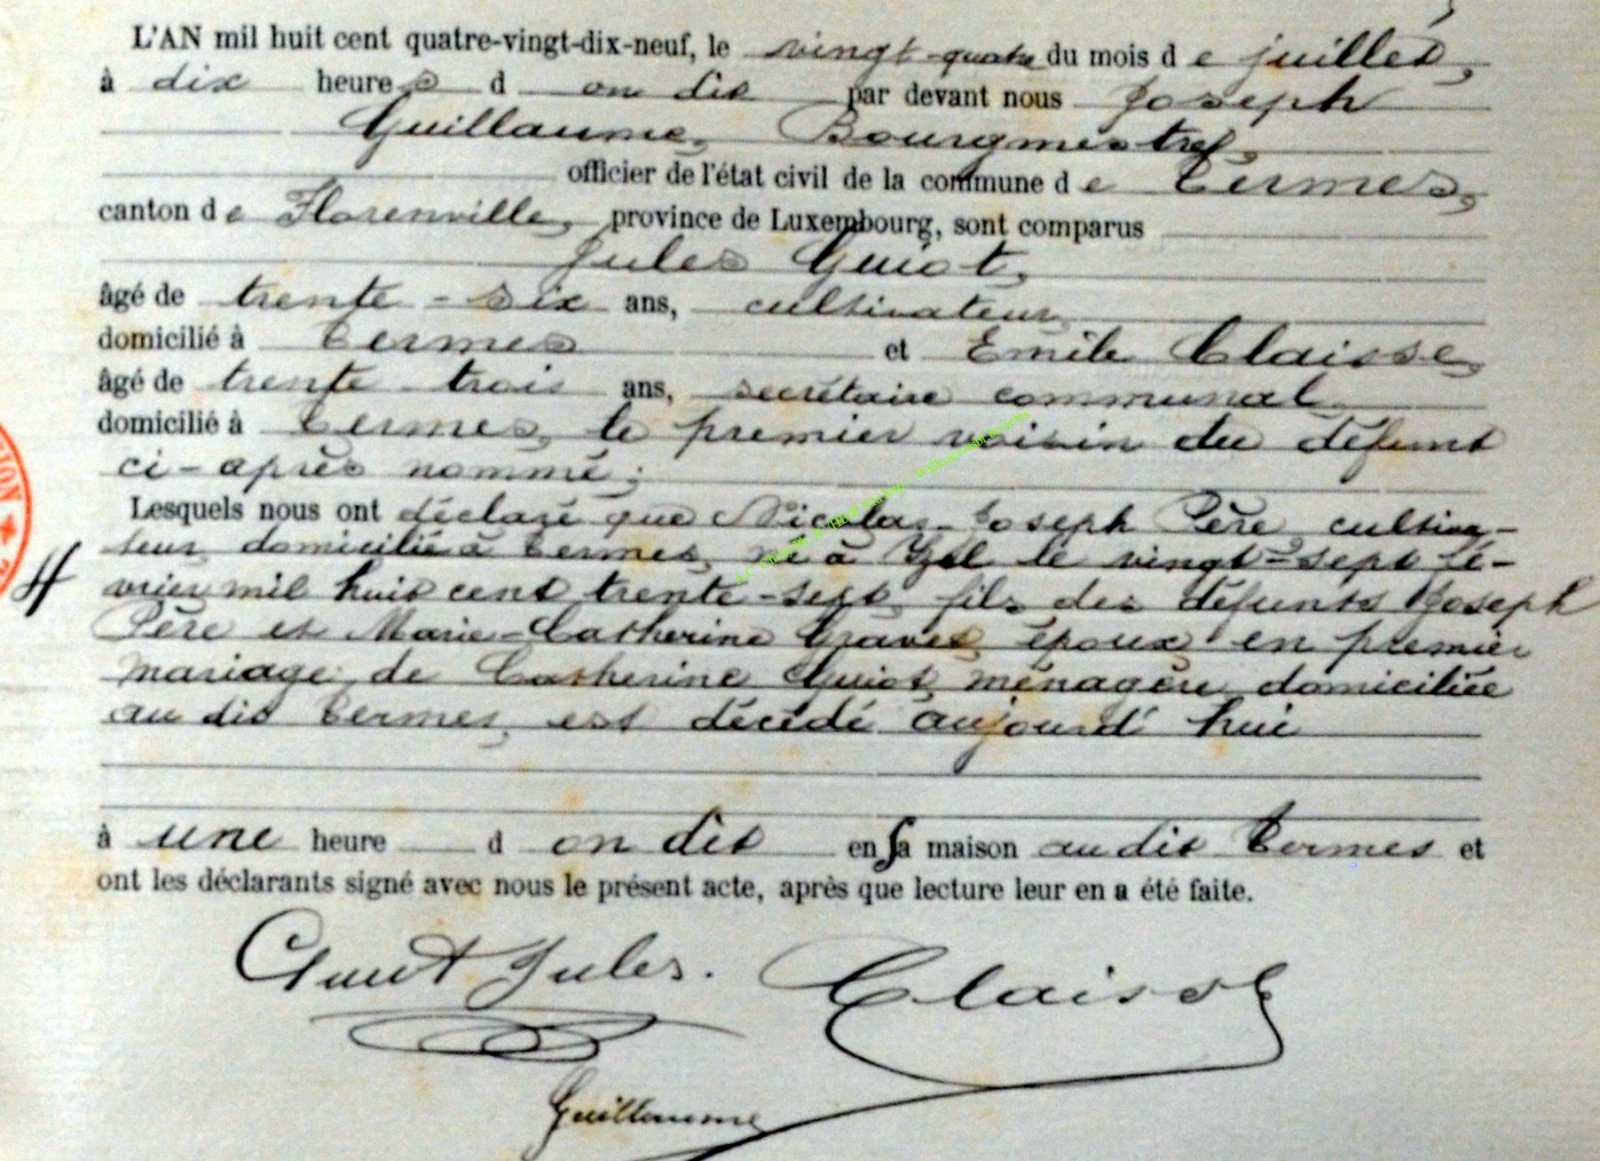 L'AN mil huit cent quatre-vingt-dix-neuf, le vingt-quatre du mois de juillet,
à dix heures d on dit par devant nous Joseph
Guillaume, Bourgmestre,
officier de l'état civil de la commune de Termes,
canton de Florenville, province de Luxembourg, sont comparus
Jules Guiot,
âgé de trente-six ans, cultivateur
domicilié à Termes et Emile Claisse,
âgé de trente trois ans, secrétaire communal
domicilié à Termes, le premier voisin du défunt
ci-après nommé;
Lesquels nous ont déclaré que Nicolas-Joseph Père cultiva-
teur domicilié à Termes, né à le vingt-sept fé-
vrier mil huit cent trente-sept, fils des défunts Joseph
Père et Marie-Catherine époux en premier
mariage de Catherine Guiot, ménagère domiciliée
au dit Termes, est décédé aujourd'hui
à une heure d on dit en sa maison au dit Termes et
ont les déclarants signé avec nous le présent acte, après que lecture leur en a été faite.
Guiot Jules. Claisse
Guillaume